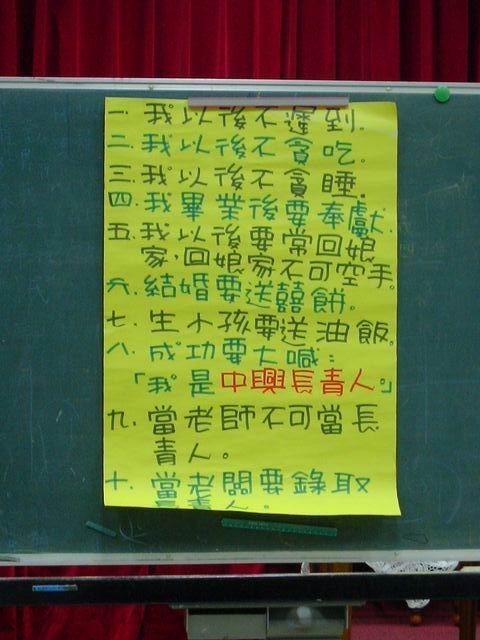 一.我以後不遲到.
二.我以後不貪吃。
三.我以後不貪睡。
四.我畢業後要奉獻.
五.我以後要常回娘
家,回娘家不可空手。
六.結婚要送囍餅。
七.生小孩要送油飯.
八.成功要大喊:
「我是中興長青人。」
九.當老師不可當長
青人。
十.當老闆要錄取
青人.